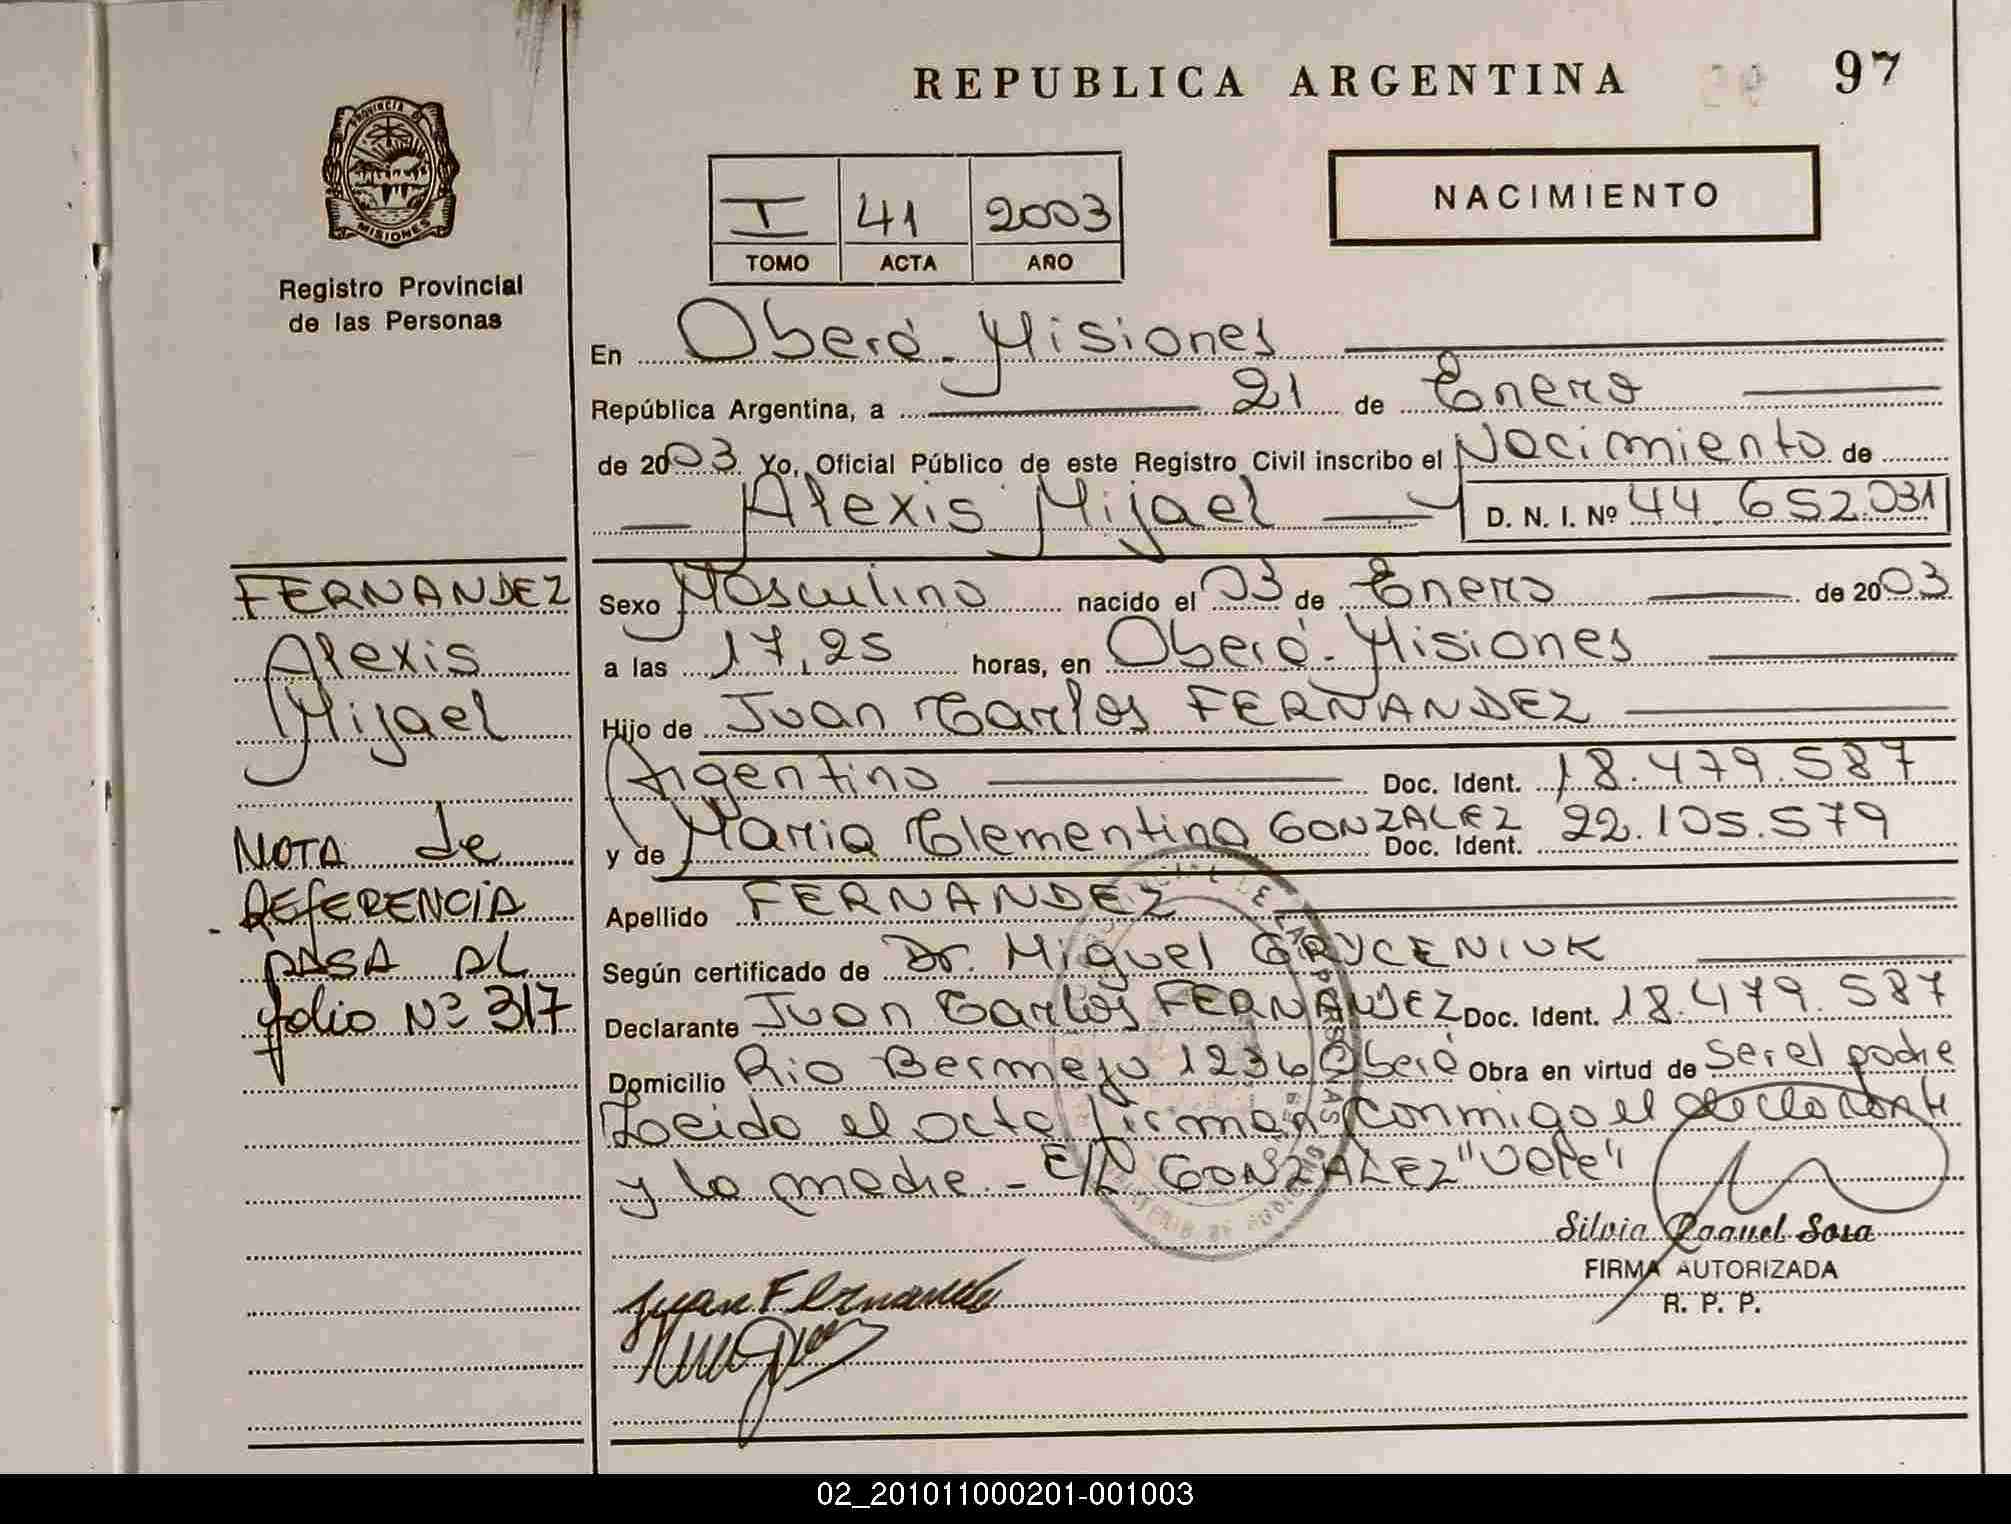 REPUBLICA ARGENTINA
97
PROVINCIA DE
MISIONES
Registro Provincial
de las Personas
I 41 2003
TOMO ACTA AÑO
NACIMIENTO
En Oberá - Misiones
República Argentina, a 21 de Enero
de 2003 Yo, Oficial Público de este Registro Civil inscribo el Nacimiento de
Alexis Mijael D. N. I. Nº 44.652.031
FERNANDEZ
Alexis
Mijael
NOTA de
REFERENCIA
PASA AL
folio Nº 317
Sexo Masculino nacido el 03 de Enero de 2003
a las 17,25 horas, en Oberá - Misiones
Hijo de Juan Carlos FERNANDEZ
Argentino Doc. Ident. 18.479.587
y de Maria Clementina GONZALEZ Doc. Ident. 22.105.579
Apellido FERNANDEZ
Según certificado de Dr. Miguel GRYCENIUK
Declarante Juan Carlos FERNANDEZ Doc. Ident. 18.479.587
Domicilio Rio Bermejo 1236 Oberá Obra en virtud de ser el padre
Leido el acta firman conmigo el declarante
y la madre - E/L GONZALEZ "Vale"
Silvia Raquel Sosa
FIRMA AUTORIZADA
R. P. P.
Juan Fernande
02_201011000201-001003